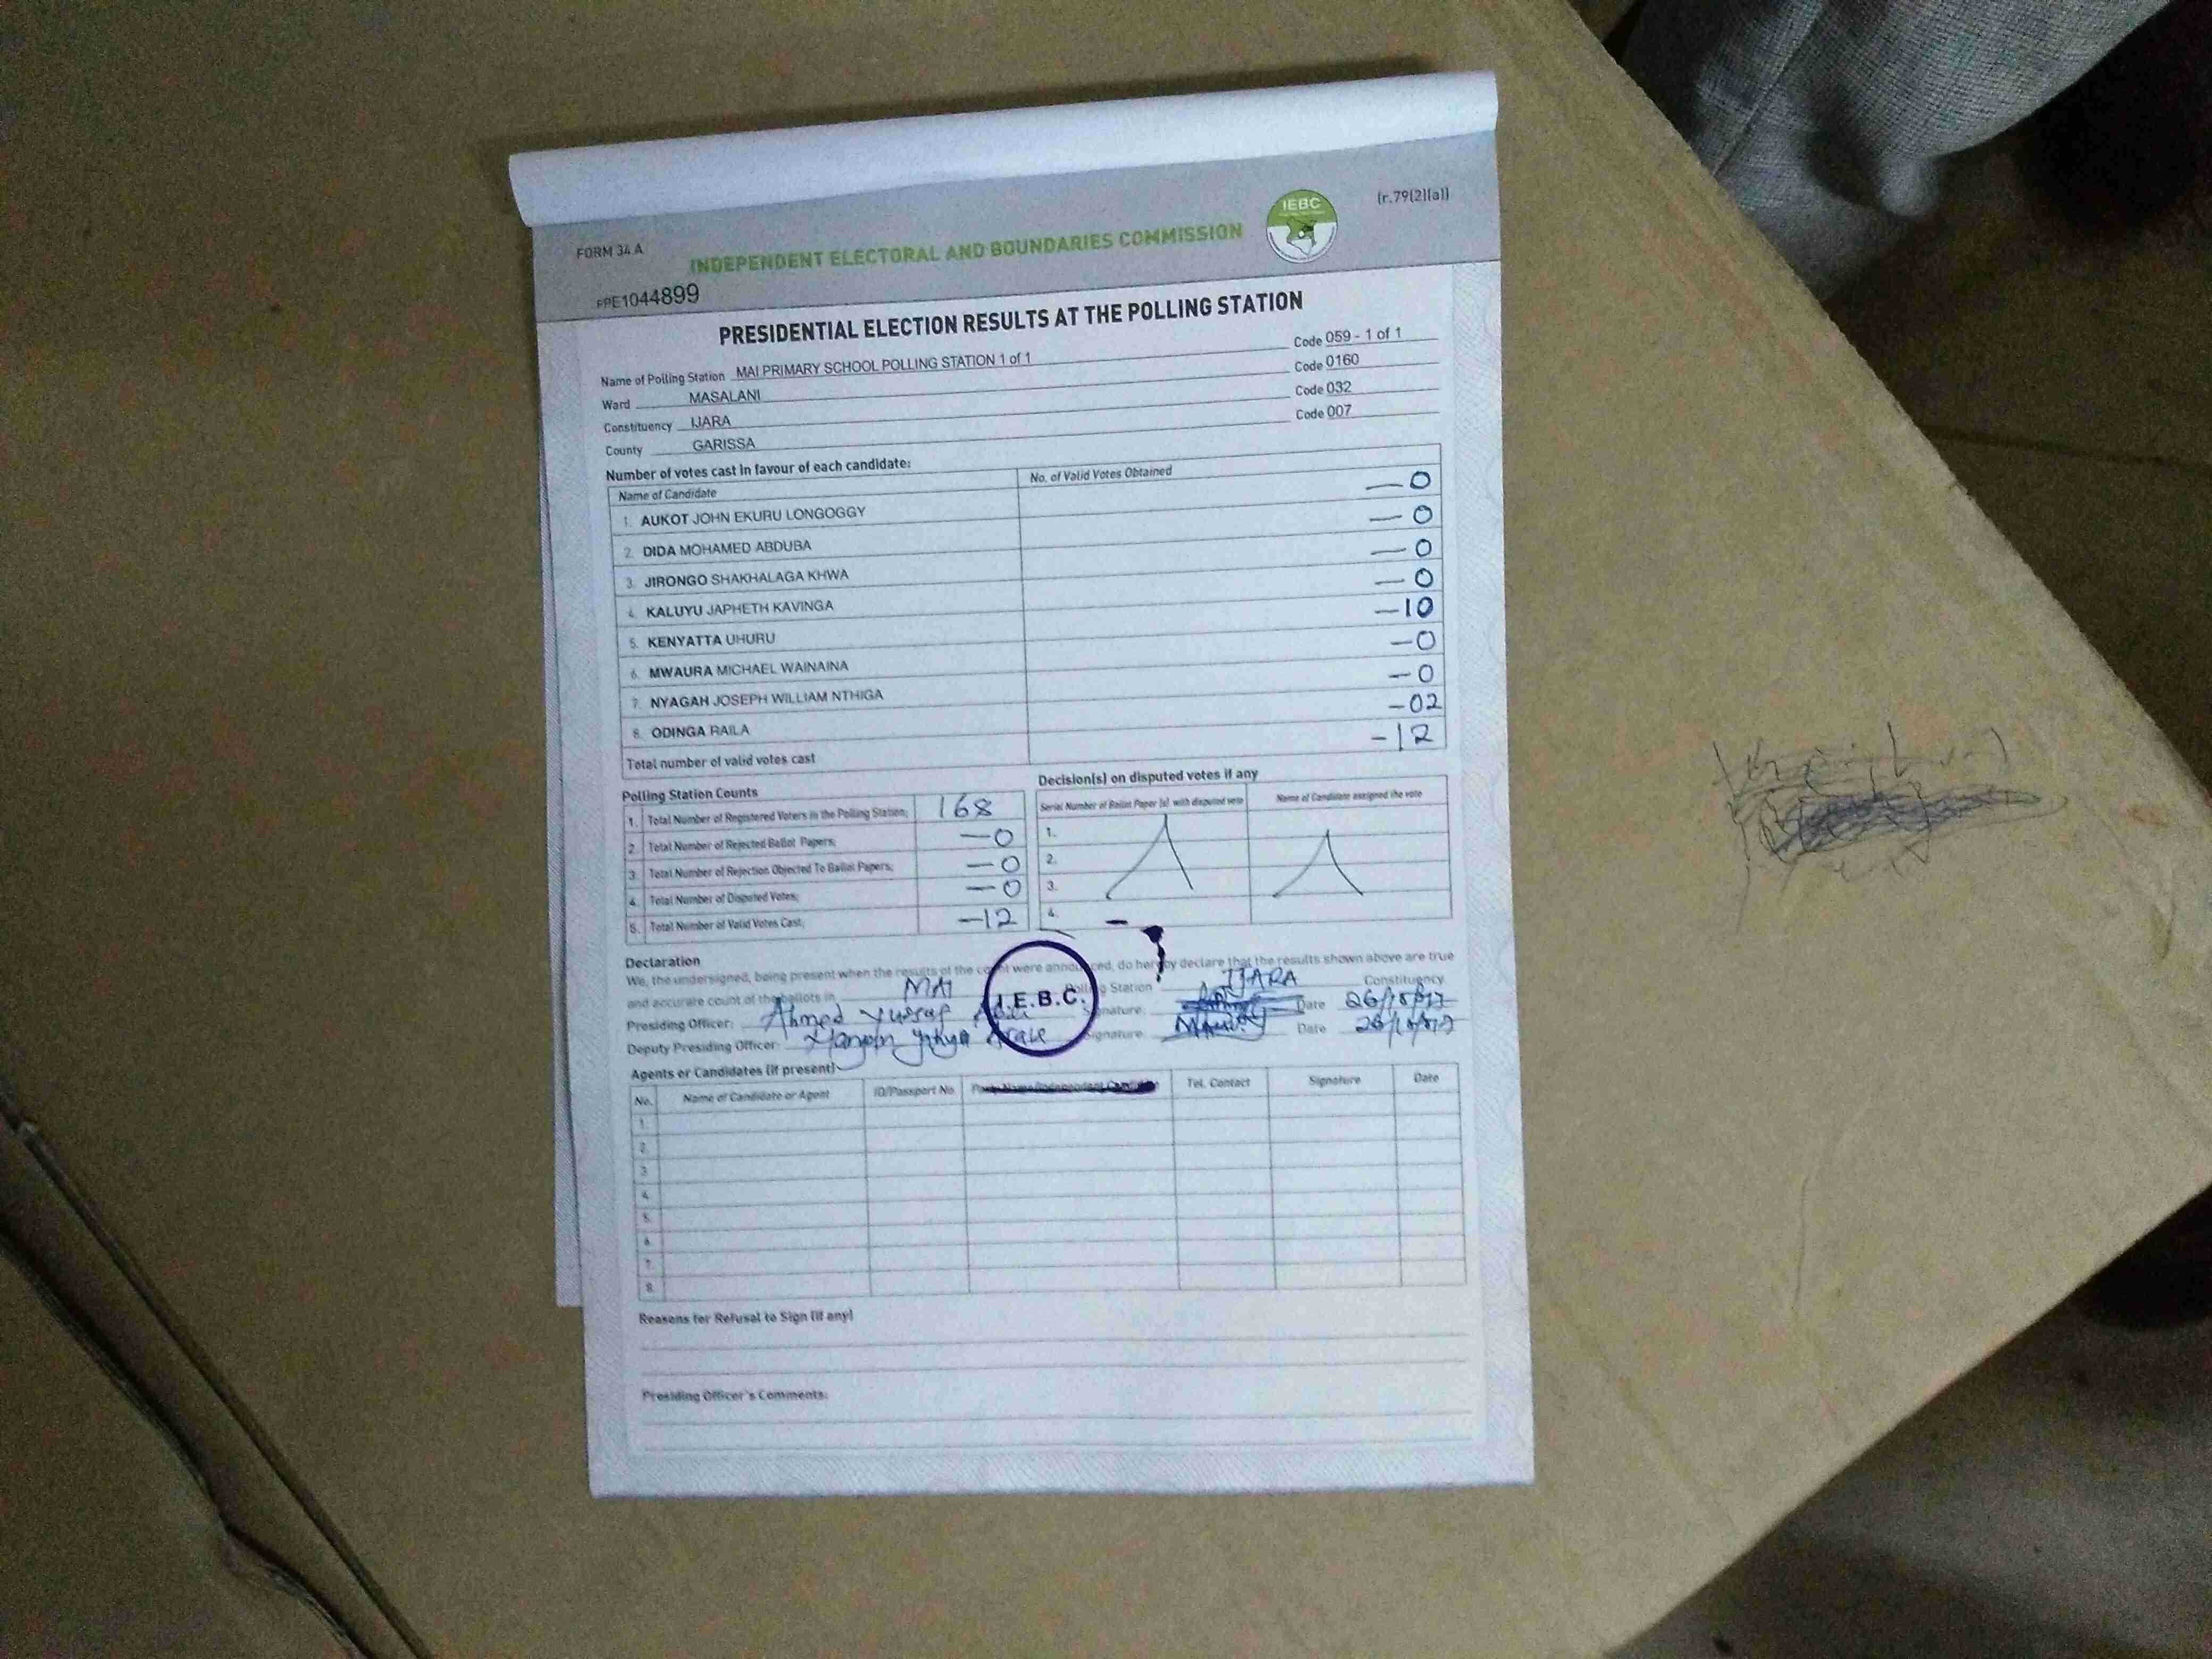 FORM 34 A
INDEPENDENT ELECTORAL AND BOUNDARIES COMMISSION
IEBC
(r.79(2)(a))
PPE1044899
PRESIDENTIAL ELECTION RESULTS AT THE POLLING STATION
Name of Polling Station MAI PRIMARY SCHOOL POLLING STATION 1 of 1 Code 059 - 1 of 1
Ward MASALANI Code 0160
Constituency IJARA Code 032
County GARISSA Code 007
Number of votes cast in favour of each candidate:
Name of Candidate No. of Valid Votes Obtained
1. AUKOT JOHN EKURU LONGOGGY — 0
2. DIDA MOHAMED ABDUBA — 0
3. JIRONGO SHAKHALAGA KHWA — 0
4. KALUYU JAPHETH KAVINGA — 0
5. KENYATTA UHURU — 10
6. MWAURA MICHAEL WAINAINA — 0
7. NYAGAH JOSEPH WILLIAM NTHIGA — 0
8. ODINGA RAILA — 02
Total number of valid votes cast — 12
Polling Station Counts
1. Total Number of Registered Voters in the Polling Station; 168
2. Total Number of Rejected Ballot Papers; — 0
3. Total Number of Rejection Objected To Ballot Papers; — 0
4. Total Number of Disputed Votes; — 0
5. Total Number of Valid Votes Cast; — 12
Decision(s) on disputed votes if any
Serial Number of Ballot Paper (s) with disputed vote Name of Candidate assigned the vote
1.
2.
3.
4. –
Declaration
We, the undersigned, being present when the results of the count were announced, do hereby declare that the results shown above are true
and accurate count of the ballots in MAI Polling Station IJARA Constituency
I.E.B.C.
Presiding Officer: Ahmed Yussuf Signature: Date 26/10/
Deputy Presiding Officer: Signature: Date 26/10/
Agents or Candidates (if present)
No. Name of Candidate or Agent ID/Passport No. Party Name/Independent Candidate Tel. Contact Signature Date
1.
2.
3.
4.
5.
6.
7.
8.
Reasons for Refusal to Sign (if any)
Presiding Officer's Comments: